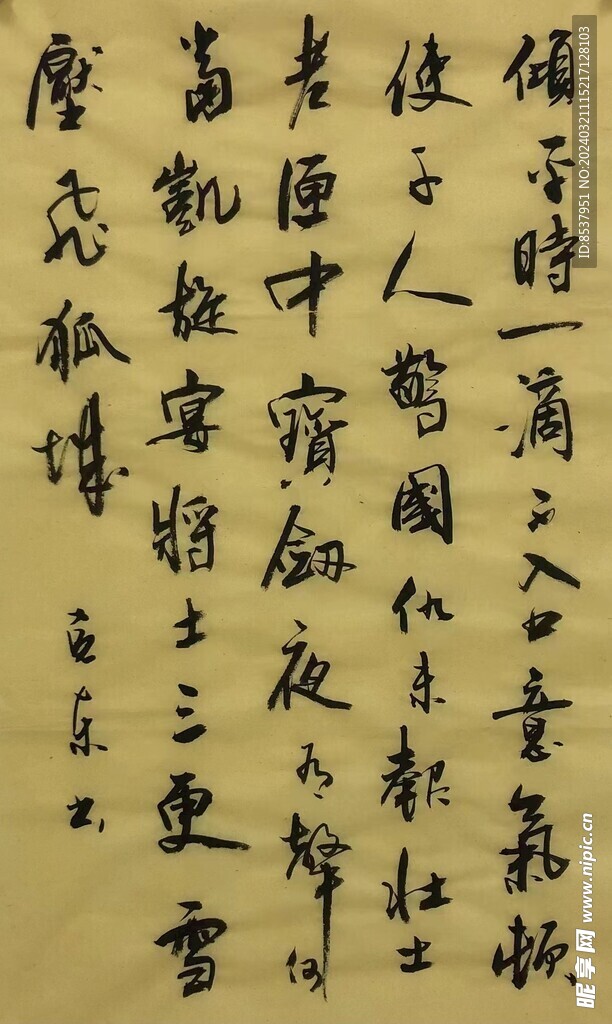 傾平時一滴不入口意氣頓
使千人驚國仇未報壯士
老匣中寶劒夜有聲何
當凱旋宴將士三更雪
壓飛狐城
东书
ID:8537951 NO:20240321115217128103
昵享网 www.nipic.cn